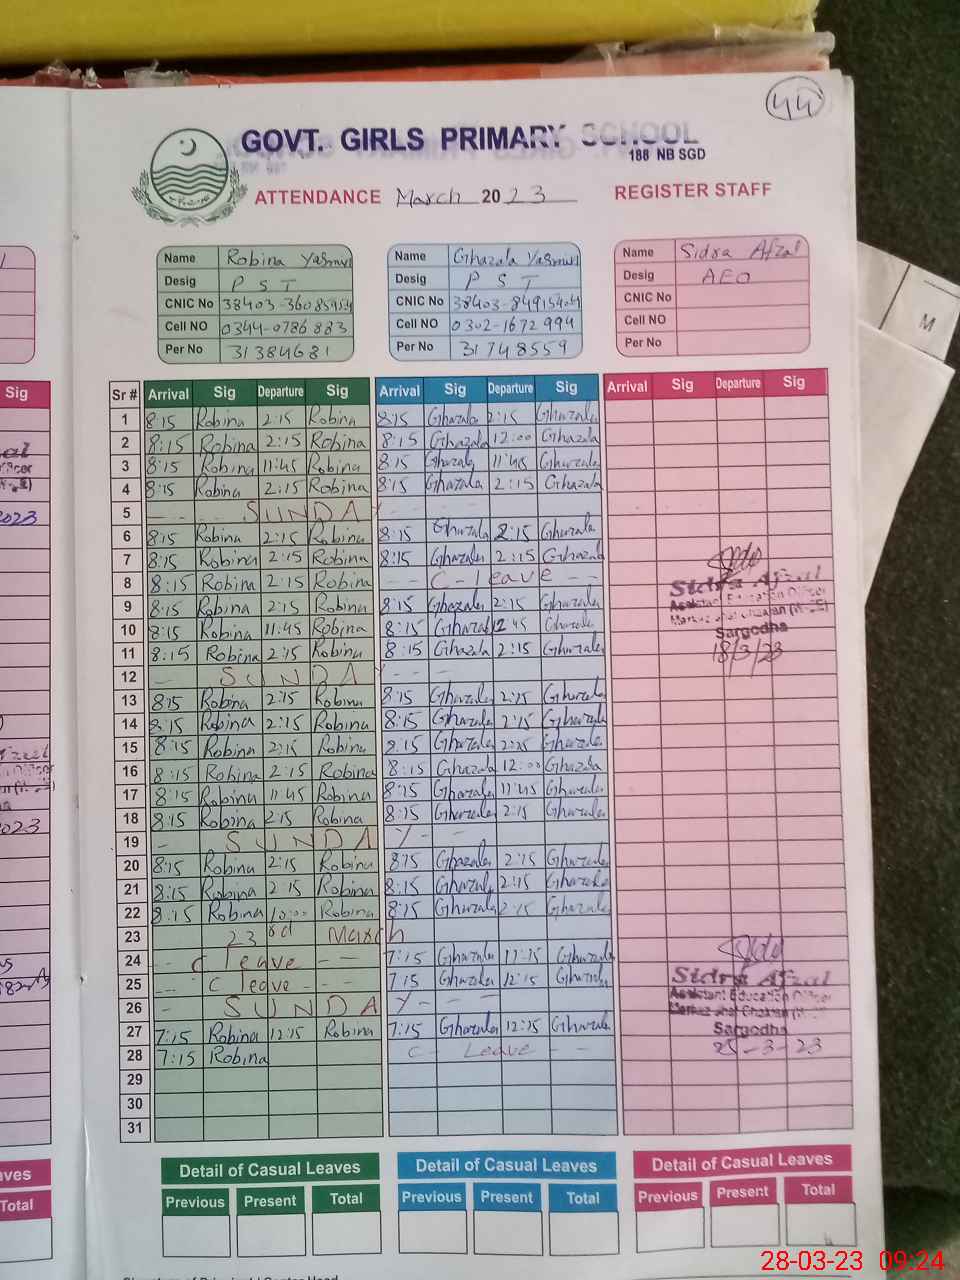 44
GOVT. GIRLS PRIMARY SCHOOL
188 NB SGD
ATTENDANCE March 2023 REGISTER STAFF
Name Robina Yasmin Name Ghazala Yasmin Name Sidra Afzal
Desig P S T Desig P S T Desig AEO
CNIC No CNIC No CNIC No
Cell NO 0344-0786883 Cell NO 0302-1672994 Cell NO
Per No 31384681 Per No 31748559 Per No
Sig Sr # Arrival Sig Departure Sig Arrival Sig Departure Sig Arrival Sig Departure Sig
1 8:15 Robina 2:15 Robina 8:15 Ghazala 2:15 Ghazala
2 8:15 Robina 2:15 Robina 8:15 Ghazala 12:00 Ghazala
3 8:15 Robina 11:45 Robina 8:15 Ghazala 11:45 Ghazala
4 8:15 Robina 2:15 Robina 8:15 Ghazala 2:15 Ghazala
5 SUNDAY
2023
6 8:15 Robina 2:15 Robina 8:15 Ghazala 2:15 Ghazala
7 8:15 Robina 2:15 Robina 8:15 Ghazala 2:15 Ghazala
8 8:15 Robina 2:15 Robina C-leave Sidra Afzal
9 8:15 Robina 2:15 Robina 8:15 Ghazala 2:15 Ghazala Assistant Education Officer
10 8:15 Robina 11:45 Robina 8:15 Ghazala 12:45 Ghazala Sargodha
11 8:15 Robina 2:15 Robina 8:15 Ghazala 2:15 Ghazala 18/3/23
12 SUNDAY
13 8:15 Robina 2:15 Robina 8:15 Ghazala 2:15 Ghazala
14 8:15 Robina 2:15 Robina 8:15 Ghazala 2:15 Ghazala
15 8:15 Robina 2:15 Robina 8:15 Ghazala 2:15 Ghazala
16 8:15 Robina 2:15 Robina 8:15 Ghazala 12:00 Ghazala
17 8:15 Robina 11:45 Robina 8:15 Ghazala 11:45 Ghazala
18 8:15 Robina 2:15 Robina 8:15 Ghazala 2:15 Ghazala
2023
19 SUNDAY
20 8:15 Robina 2:15 Robina 8:15 Ghazala 2:15 Ghazala
21 8:15 Robina 2:15 Robina 8:15 Ghazala 2:15 Ghazala
22 8:15 Robina 10:00 Robina 8:15 Ghazala 2:15 Ghazala
23 23rd March
24 C leave 7:15 Ghazala 11:15 Ghazala
25 C leave 7:15 Ghazala 12:15 Ghazala Sidra Afzal
26 SUNDAY Assistant Education Officer
27 7:15 Robina 12:15 Robina 7:15 Ghazala 12:15 Ghazala Sargodha
28 7:15 Robina C-Leave 25-3-23
29
30
31
Detail of Casual Leaves Detail of Casual Leaves Detail of Casual Leaves
Total Previous Present Total Previous Present Total Previous Present Total
M
28-03-23 09:24